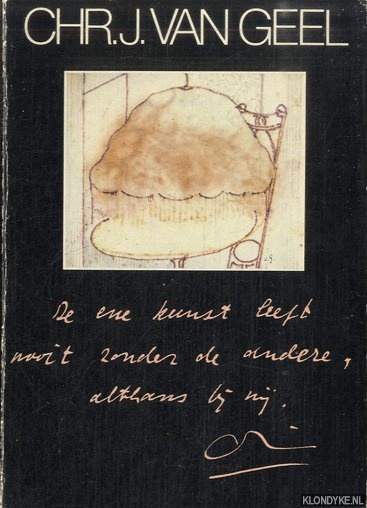 CHR.J. VAN GEEL
De ene kunst leeft
nooit zonder de andere,
althans bij mij.
KLONDYKE.NL